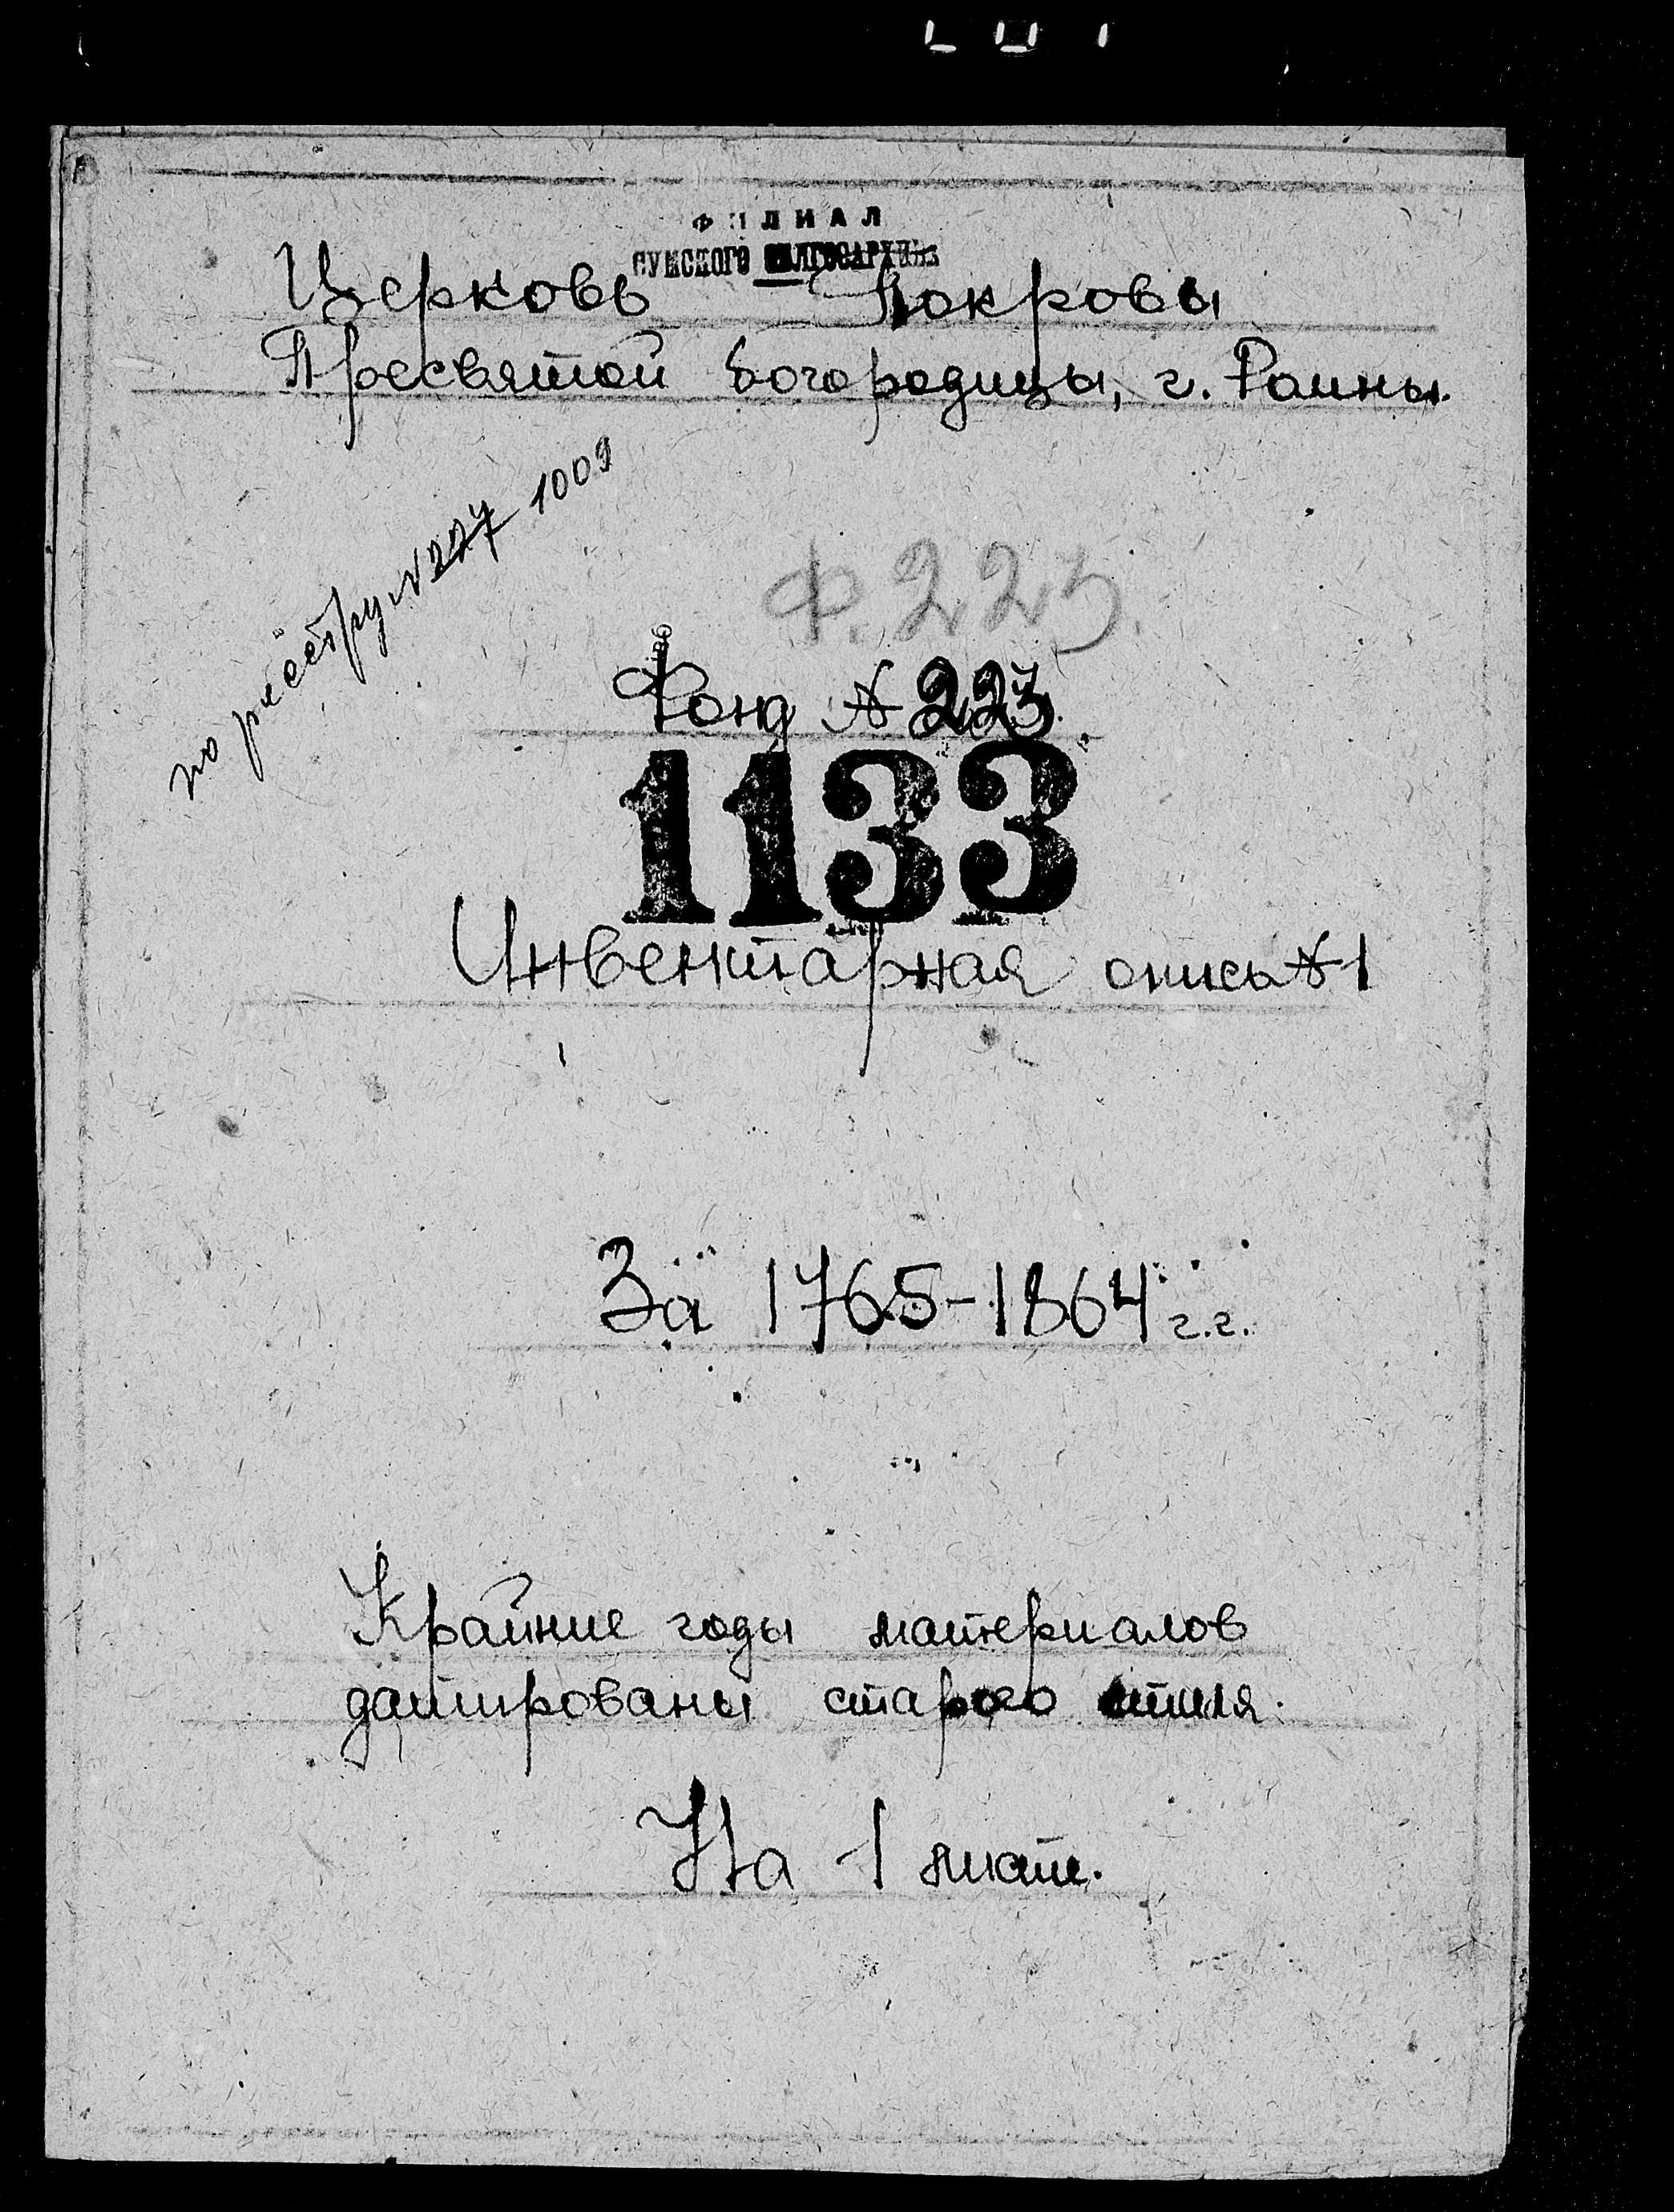 ФИЛИАЛ
СУМСКОГО ОБЛГОСАРХИВА
Церковь Покровы
Пресвятой Богородицы, г. Ромны.
по реестру № 227 1009
Ф. 223.
Фонд № 223.
1133
Инвентарная опись № 1
За 1765-1864 г.г.
Крайние годы материалов
датированы старого стиля.
На 1 лист.